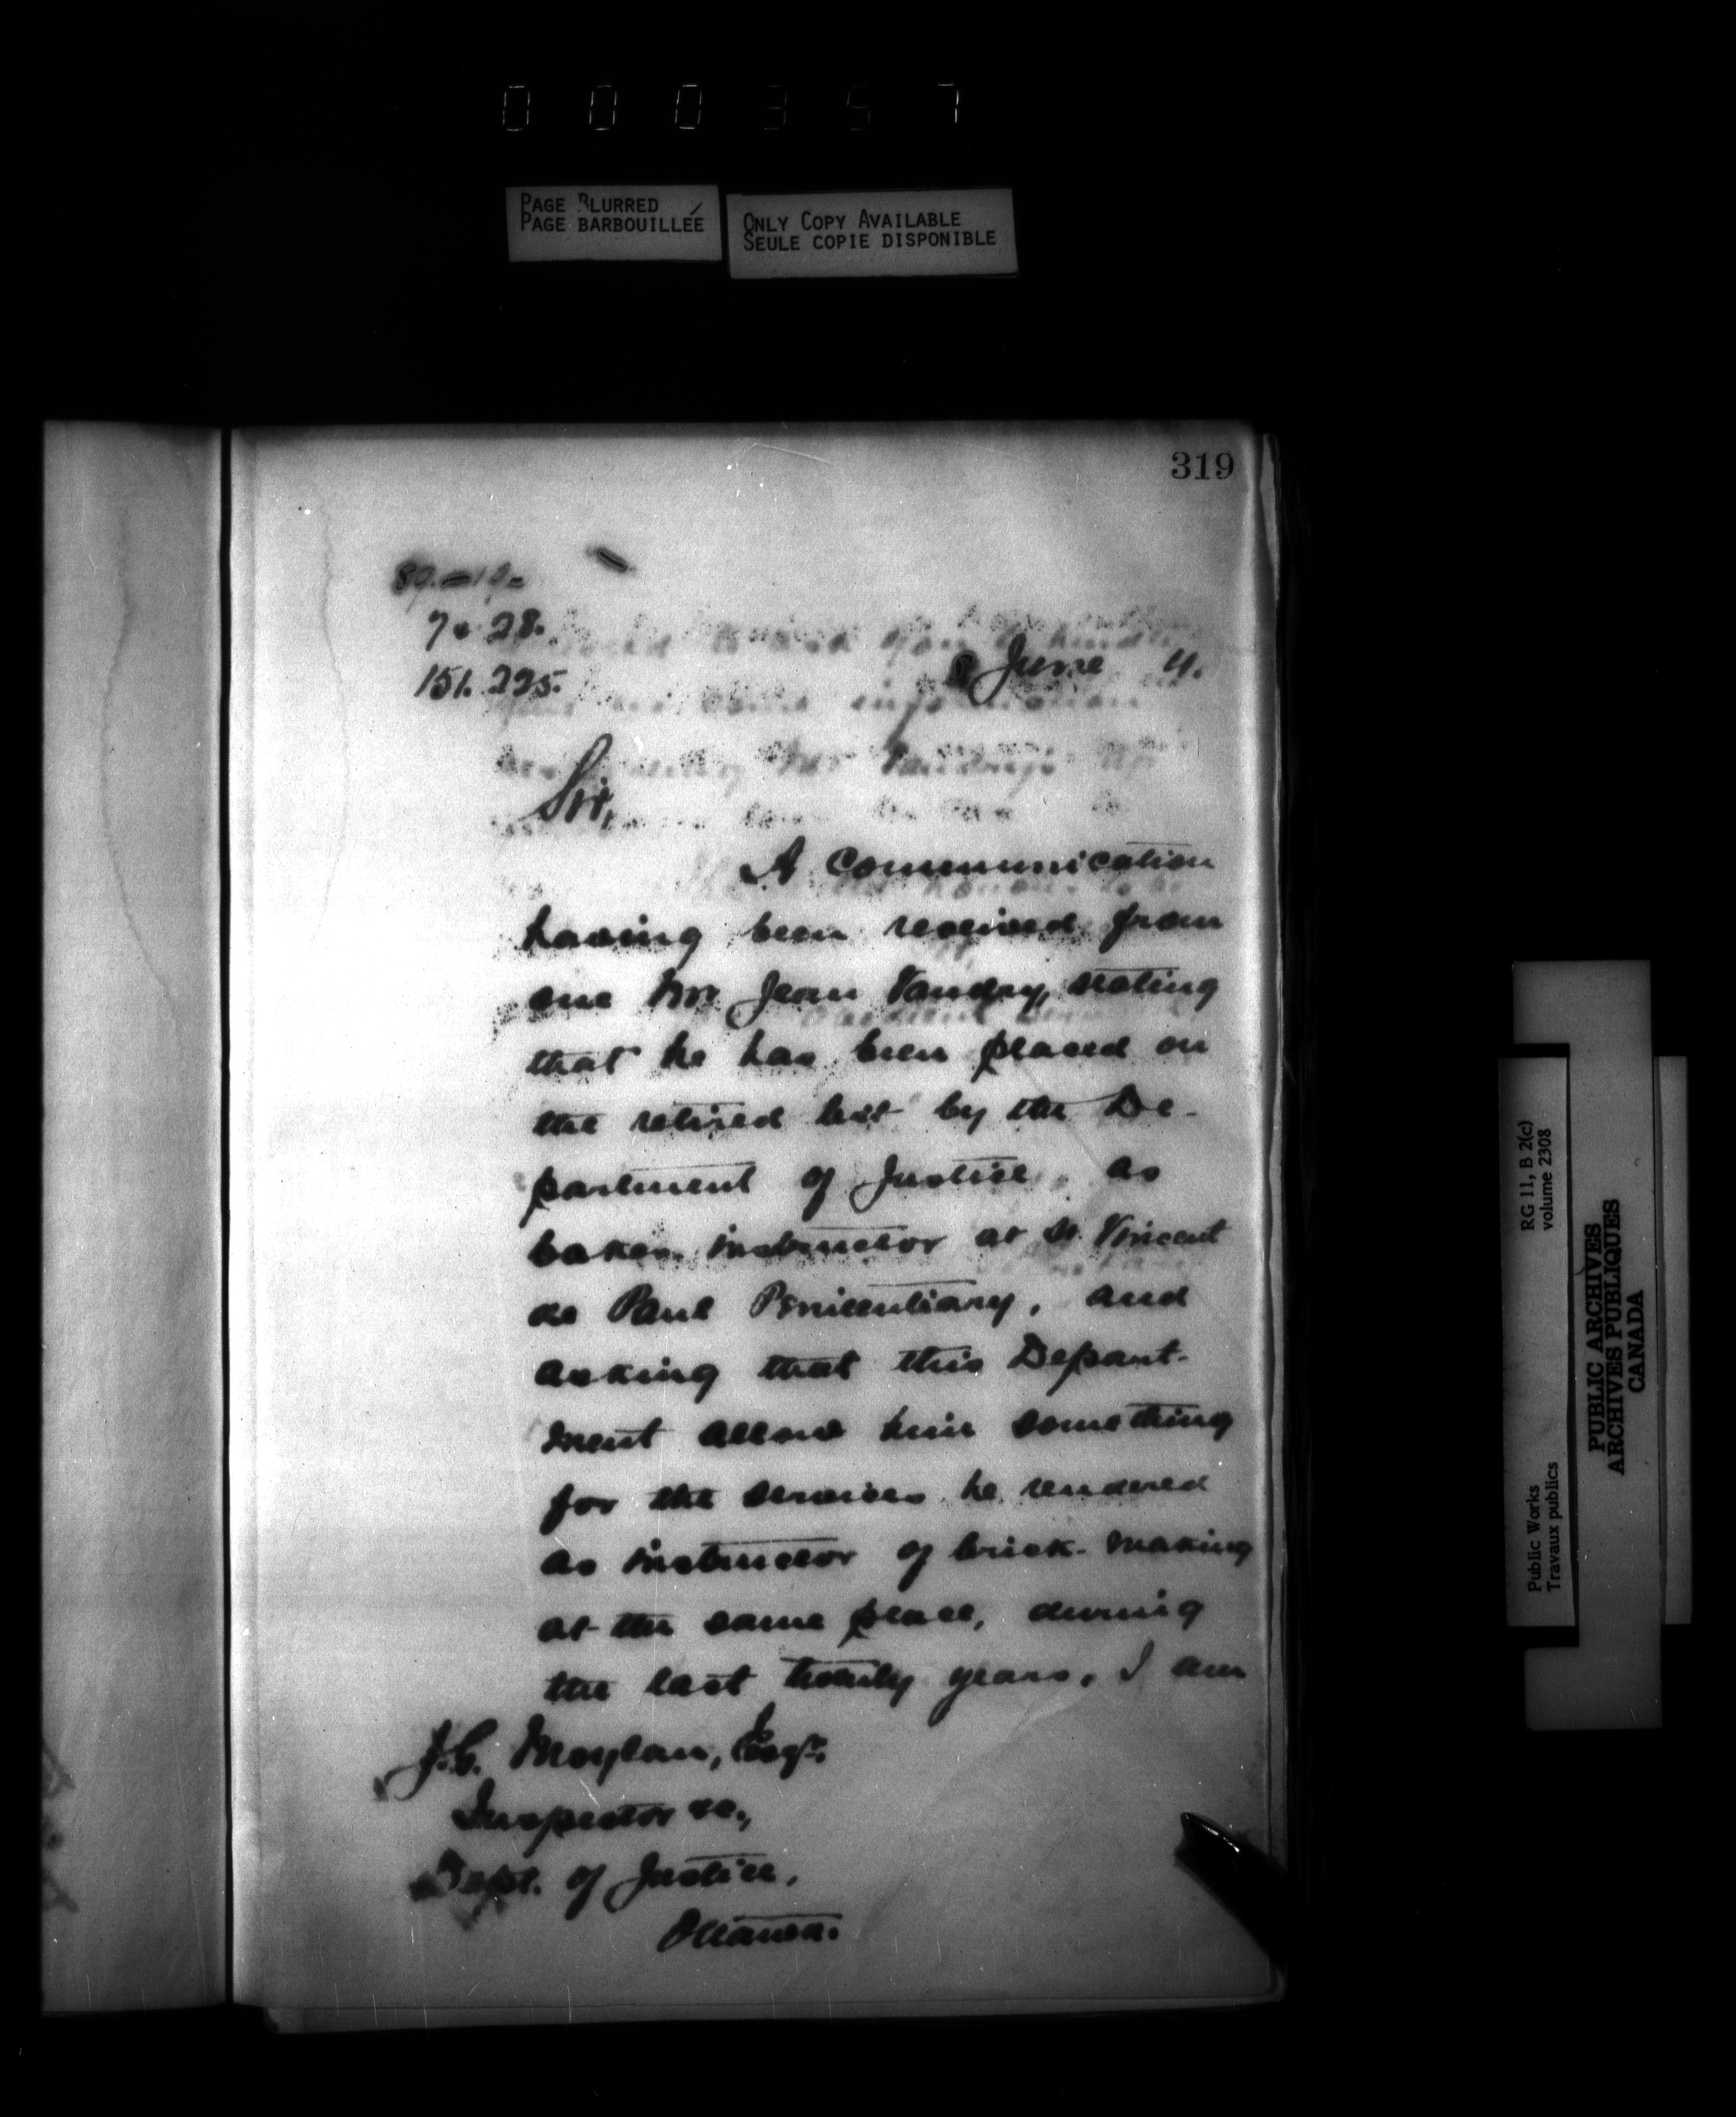 000357
PAGE BLURRED
PAGE BARBOUILLÉE
ONLY COPY AVAILABLE
SEULE COPIE DISPONIBLE
319
7. 28.
151. 225.
June 4.
Sir,
A Communication
having been received from
one Mr Jean Vaudry, stating
that he has been placed on
the retired list by the De-
partment of Justice, as
baker instructor at St. Vincent
de Paul Penitentiary, and
asking that this Depart-
ment allow him something
for the services he rendered
as instructor of brick-making
at the same place, during
the last twenty years, I am
J.G. Moylan, Esqr.
Inspector &c.,
Dept. of Justice,
Ottawa.
RG 11, B 2(c)
volume 2308
Public Works
Travaux publics
PUBLIC ARCHIVES
ARCHIVES PUBLIQUES
CANADA